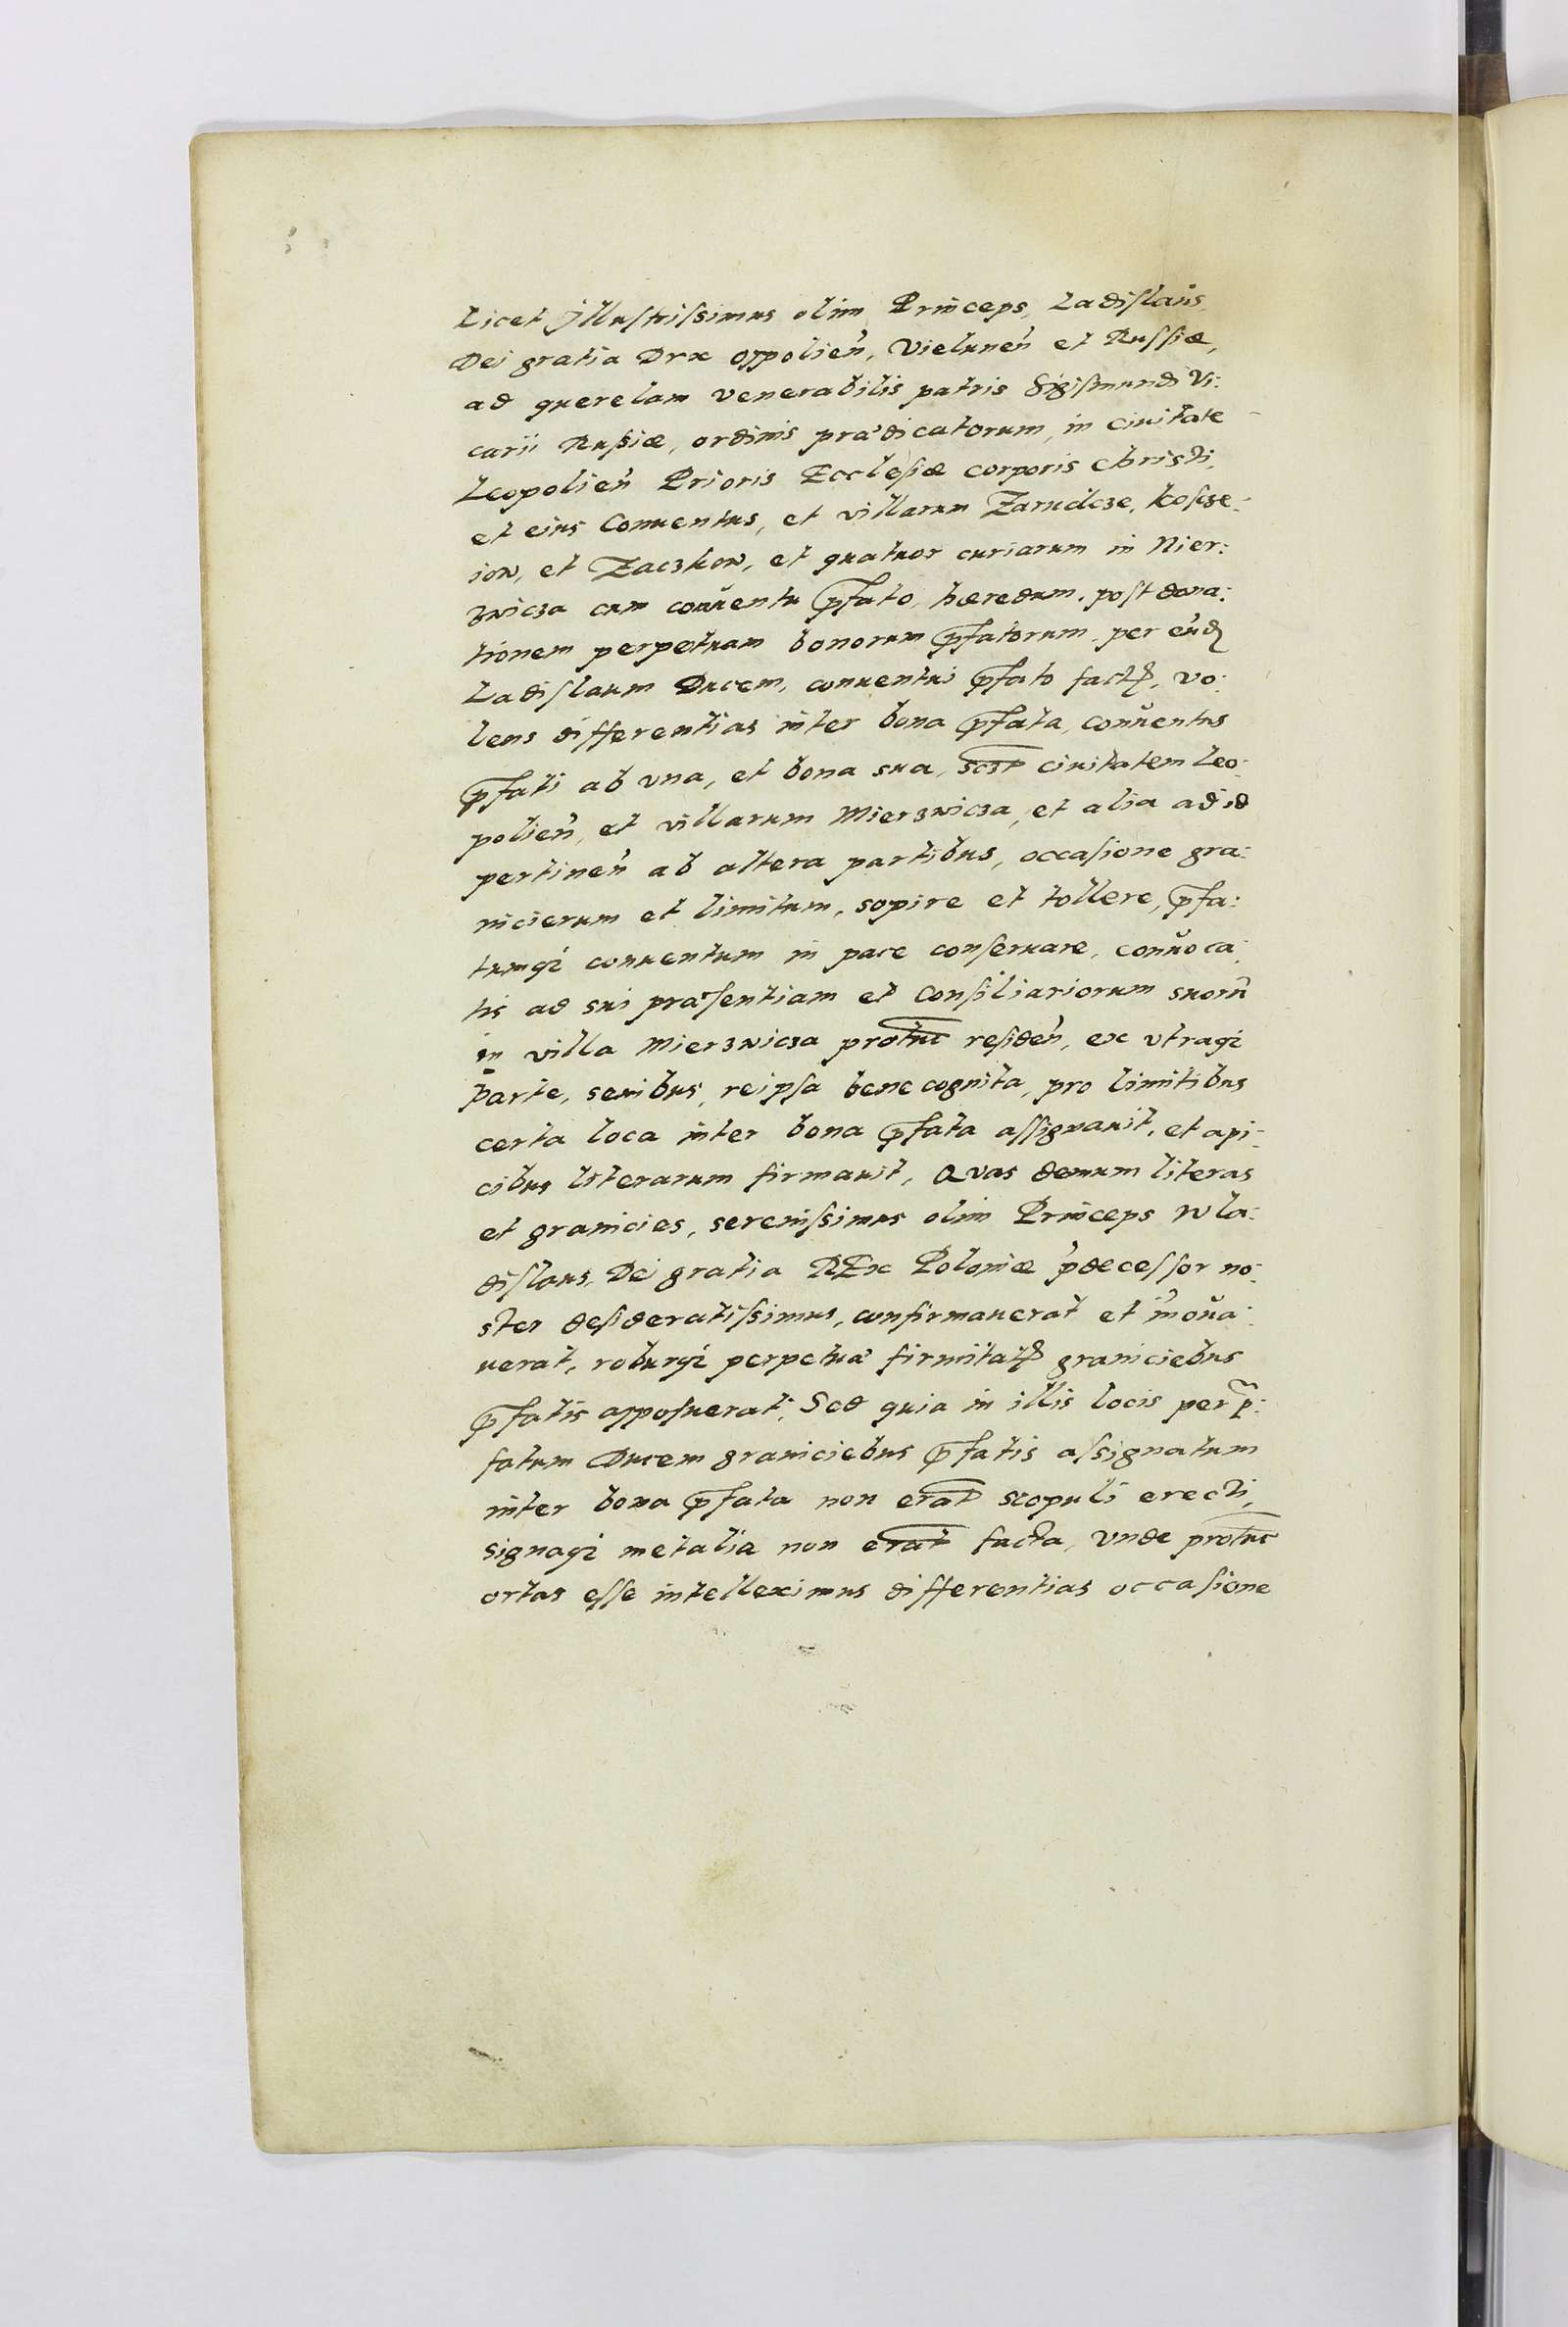 Licet Jllustrissimus olim Princeps, Ladislaus
Dei gratia Dux Oppolien̄, Vielunen̄ et Russiæ,
ad querelam venerabilis patris Sigismundi Vi:
carii Russiæ, ordinis prædicatorum, in ciuitate
Leopolien̄ Prioris Ecclesiæ corporis christi,
et eius Conuentus, et villarum Zarudcze, Kosize:
iow, et Zaczkow, et quatuor curiarum in Mier:
zwicza cum conuentu p̄fato, hæredum, post dona:
tionem perpetuam bonorum p̄fatorum, per eūd
Ladislaum Ducem, conuentui p̄fato fact, vo:
lens differentias inter bona p̄fata, conuentus
p̄fati ab vna, et bona sua, sczt ciuitatem Leo:
polien̄, et villarum Mierzwicza, et alia ad id
pertinen̄ ab altera partibus, occasione gra:
nicierum et limitum, sopire et tollere, p̄fa:
tumq; conuentum in pace conseruare, conuoca:
tis ad sui præsentiam et Consiliariorum suorū
in villa Mierzwicza protūc residen̄, ex vtraq;
parte, senibus, reipsa bene cognita, pro limitibus
certa loca inter bona p̄fata assignauit, et api:
cibus literarum firmauit, Quas demum literas
et granicies, serenissimus olim Princeps Wla:
dislaus, Dei gratia REx Poloniæ p̄decessor no:
ster desideratissimus, confirmauerat et inoua:
uerat, roburq; perpetuæ firmitat graniciebus
p̄fatis apposuerat; Sed quia in illis locis per p̄:
fatum Ducem graniciebus p̄fatis assignatum
inter bona p̄fata non erāt scopuli erecti,
signaq; metalia non erāt facta, vnde protūc
ortas esse intelleximus differentias occasione